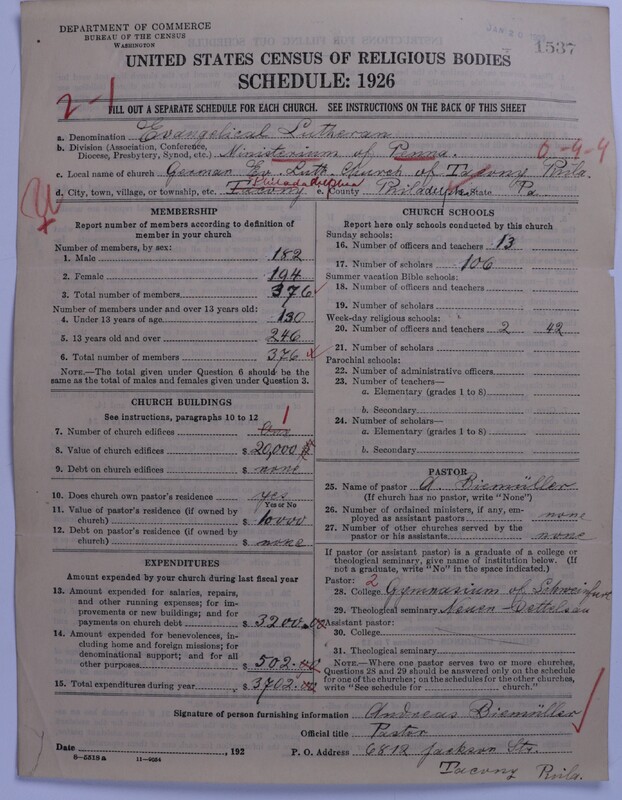 DEPARTMENT OF COMMERCE
BUREAU OF THE CENSUS
WASHINGTON
1537
UNITED STATES CENSUS OF RELIGIOUS BODIES
SCHEDULE: 1926
2-1
FILL OUT A SEPARATE SCHEDULE FOR EACH CHURCH. SEE INSTRUCTIONS ON THE BACK OF THIS SHEET
a. Denomination Evangelical Lutheran
b. Division (Association, Conference, Diocese, Presbytery, Synod, etc.) Ministerium of Penna. 6-4-4
c. Local name of church German Ev. Luth. Church of Tacony Phila.
d. City, town, village, or township, etc. Tacony Philadelphia e. County Philadelphia State Pa
MEMBERSHIP
Report number of members according to definition of member in your church
Number of members, by sex:
1. Male 182
2. Female 194
3. Total number of members 376
Number of members under and over 13 years old:
4. Under 13 years of age 130
5. 13 years old and over 246
6. Total number of members 376
NOTE.—The total given under Question 6 should be the same as the total of males and females given under Question 3.
CHURCH BUILDINGS
See instructions, paragraphs 10 to 12
7. Number of church edifices One 1
8. Value of church edifices $ 20,000
9. Debt on church edifices $ none
10. Does church own pastor's residence yes
Yes or No
11. Value of pastor's residence (if owned by church) $ 10000
12. Debt on pastor's residence (if owned by church) $ none
EXPENDITURES
Amount expended by your church during last fiscal year
13. Amount expended for salaries, repairs, and other running expenses; for improvements or new buildings; and for payments on church debt $ 3200.00
14. Amount expended for benevolences, including home and foreign missions; for denominational support; and for all other purposes $ 502.40
15. Total expenditures during year $ 3702.40
CHURCH SCHOOLS
Report here only schools conducted by this church
Sunday schools:
16. Number of officers and teachers 13
17. Number of scholars 106
Summer vacation Bible schools:
18. Number of officers and teachers
19. Number of scholars
Week-day religious schools:
20. Number of officers and teachers 2 42
21. Number of scholars
Parochial schools:
22. Number of administrative officers
23. Number of teachers—
a. Elementary (grades 1 to 8)
b. Secondary
24. Number of scholars—
a. Elementary (grades 1 to 8)
b. Secondary
PASTOR
25. Name of pastor A. Biemüller
(If church has no pastor, write "None")
26. Number of ordained ministers, if any, employed as assistant pastors none
27. Number of other churches served by the pastor or his assistants none
If pastor (or assistant pastor) is a graduate of a college or theological seminary, give name of institution below. (If not a graduate, write "No" in the space indicated.)
Pastor: 2
28. College Gymnasium of Schweinfurt
29. Theological seminary Neuen-Dettelsau
Assistant pastor:
30. College
31. Theological seminary
NOTE.—Where one pastor serves two or more churches, Questions 28 and 29 should be answered only on the schedule for one of the churches; on the schedules for the other churches, write "See schedule for church."
Signature of person furnishing information Andreas Biemüller
Official title Pastor
Date , 192 P. O. Address 6812 Jackson Str.
8-5518a 11-9064
Tacony Phila.